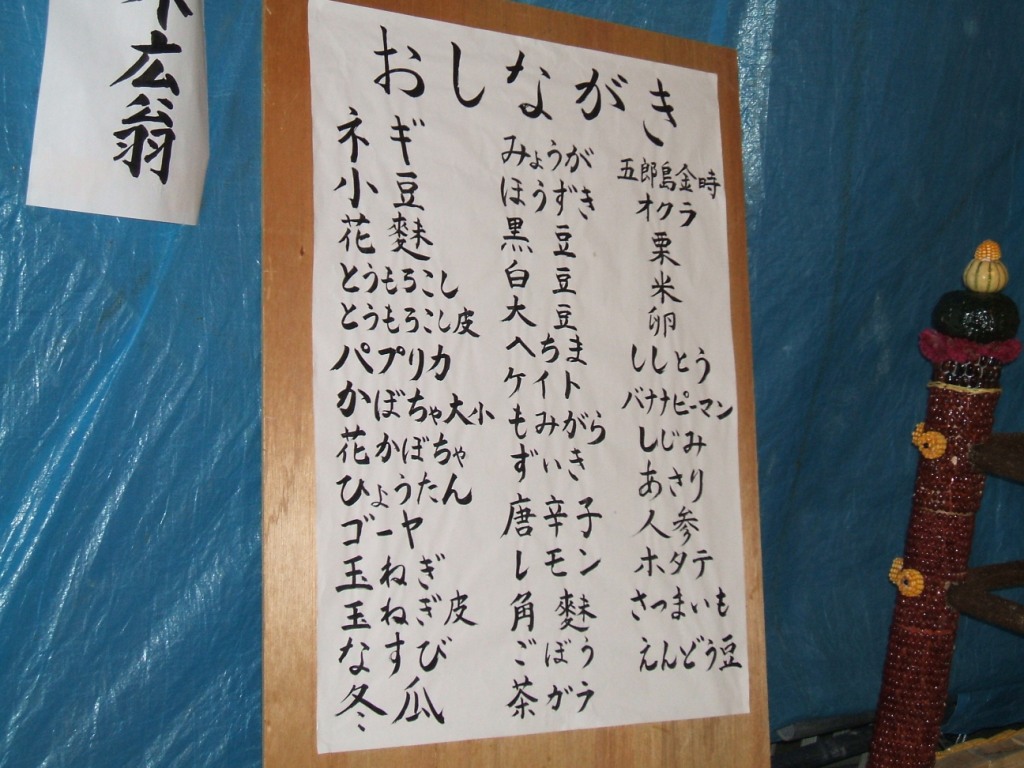 広翁
おしながき
ネギ
小豆
花麩
とうもろこし
とうもろこし皮
パプリカ
かぼちゃ大小
花かぼちゃ
ひょうたん
ゴーヤ
玉ねぎ
玉ねぎ皮
なすび
冬瓜
みょうが
ほうずき
黒豆
白豆
大豆
へちま
ケイト
もみがら
ずいき
唐辛子
レモン
角麩
ごぼう
茶ガラ
五郎島金時
オクラ
栗
米
卵
ししとう
バナナピーマン
しじみ
あさり
人参
ホタテ
さつまいも
えんどう豆